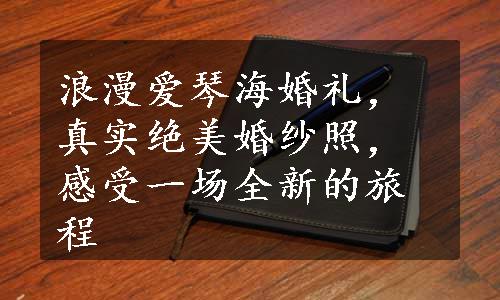 浪漫爱琴海婚礼，
真实绝美婚纱照，
感受一场全新的旅
程